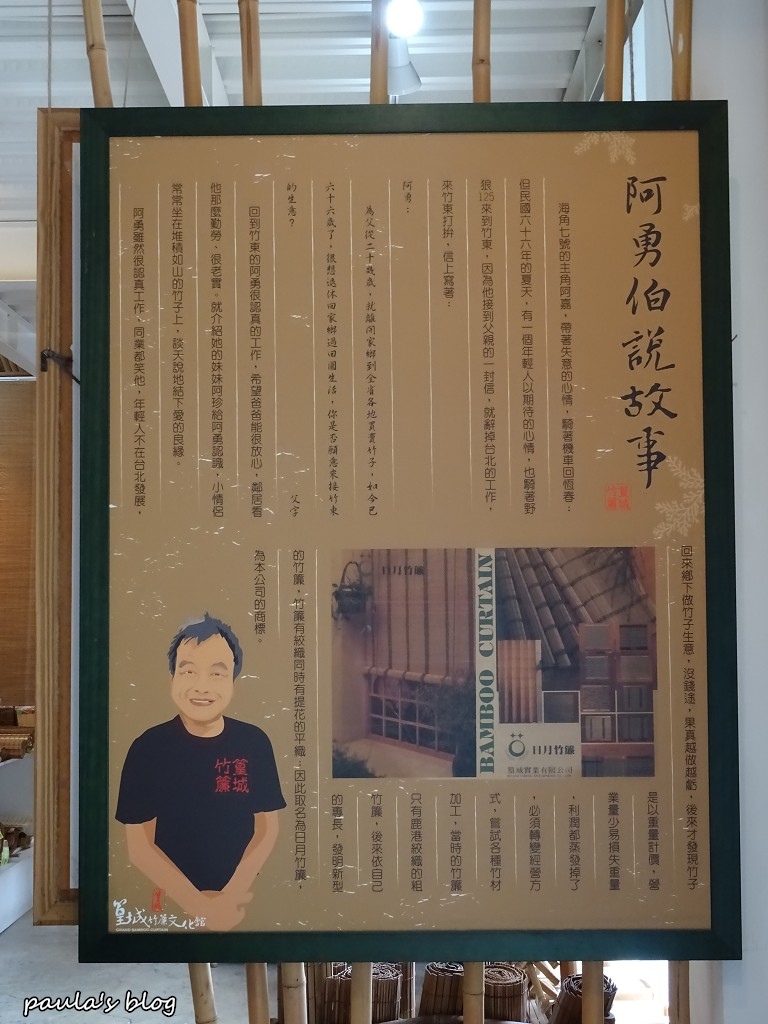 阿勇伯說故事
篁城
竹簾
海角七號的主角阿嘉，帶著失意的心情，騎著機車回恆春；
但民國六十六年的夏天，有一個年輕人以期待的心情，也騎著野
狼125來到竹東，因為他接到父親的一封信，就辭掉台北的工作，
來竹東打拚，信上寫著：
阿勇：
為父從二十幾歲，就離開家鄉到全省各地買賣竹子，如今已
六十六歲了，很想退休回家鄉過田園生活，你是否願意來接竹東
的生意？
父字
回到竹東的阿勇很認真的工作，希望爸爸能很放心，鄰居看
他那麼勤勞、很老實。就介紹她的妹妹阿珍給阿勇認識，小情侶
常常坐在堆積如山的竹子上，談天說地結下愛的良緣。
阿勇雖然很認真工作，同業都笑他，年輕人不在台北發展，
回來鄉下做竹子生意，沒錢途，果真越做越虧，後來才發現竹子
是以重量計價，營
業量少易損失重量
，利潤都蒸發掉了
，必須轉變經營方
式，嘗試各種竹材
加工，當時的竹簾
只有鹿港絞織的粗
竹簾，後來依自己
的專長，發明新型
的竹簾，竹簾有絞織同時有提花的平織；因此取名為日月竹簾，
為本公司的商標。
日月竹簾
BAMBOO CURTAIN
日月竹簾
篁城實業有限公司
篁城
竹簾
篁城竹簾文化館
GRAND BAMBOO CURTAIN
paula's blog